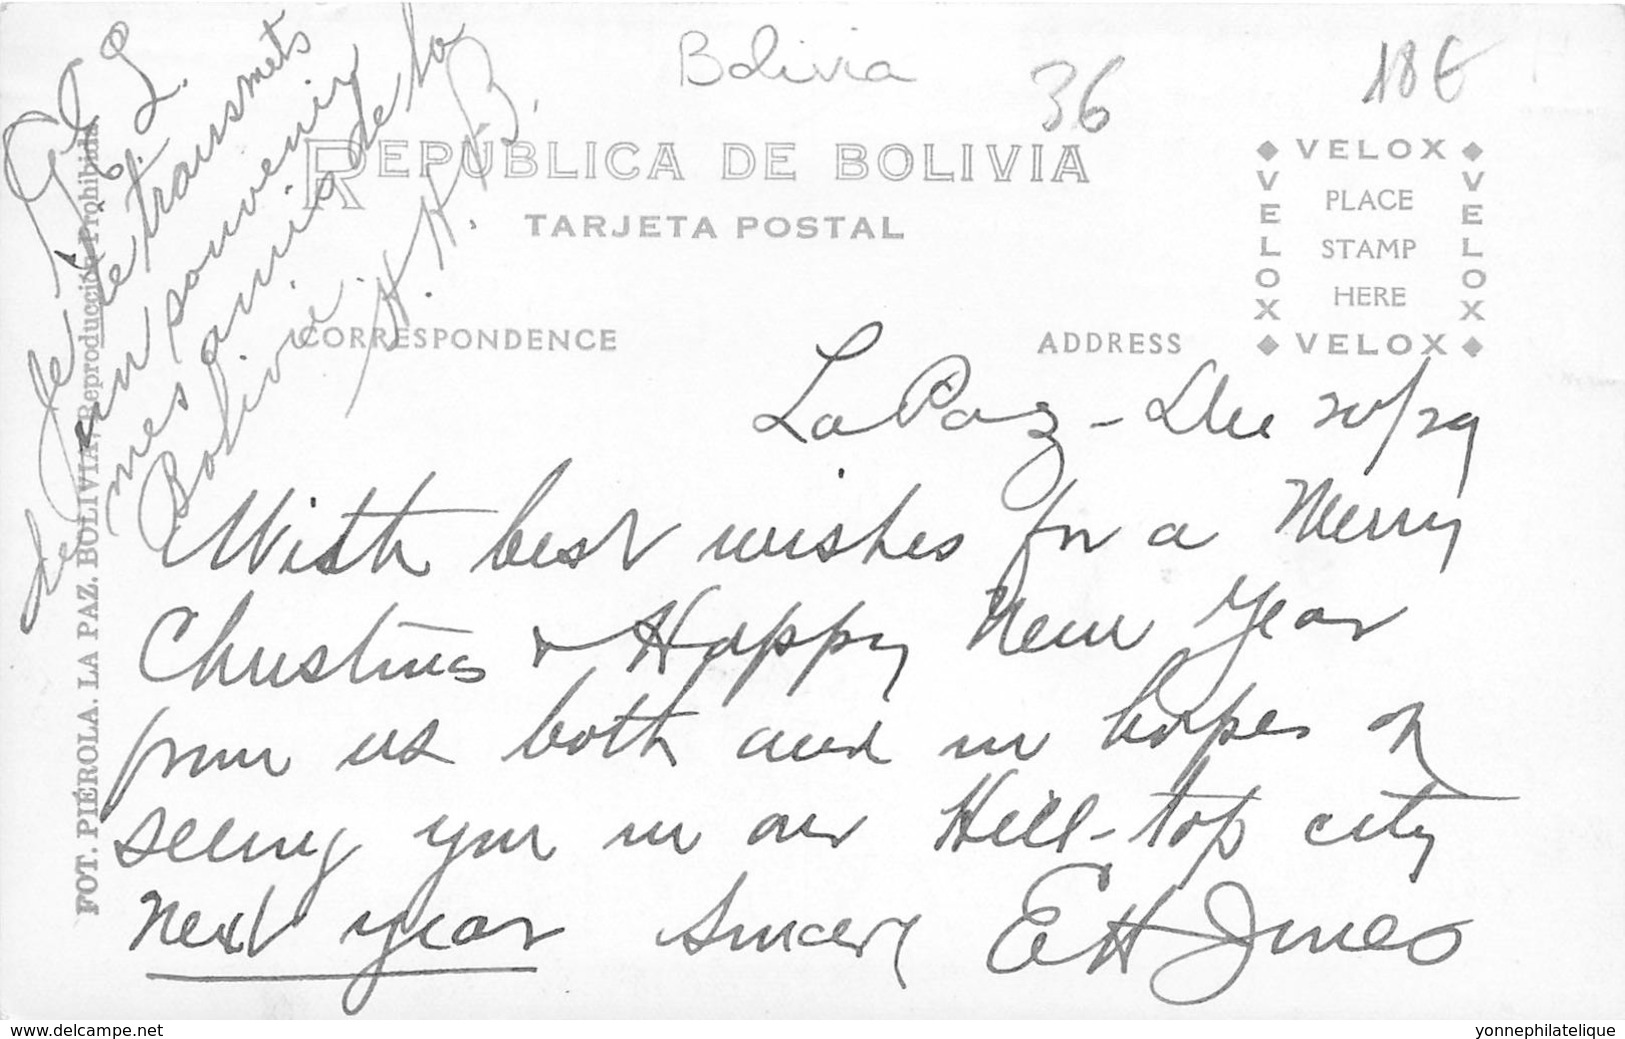 Bolivia
36
18€
REPÚBLICA DE BOLIVIA
TARJETA POSTAL
CORRESPONDENCE
ADDRESS
VELOX
VELOX
PLACE
STAMP
HERE
VELOX
VELOX
FOT. PIÉROLA. LA PAZ. BOLIVIA. Reproducción Prohibida
La Paz - Dec 20/29
With best wishes for a Merry
Christmas & Happy New Year
from us both and in hopes of
seeing you in our Hill-top city
next year Sincerely E H Jones
Je te transmets
un souvenir
mes amis de la
Bolivie. H.K.B.